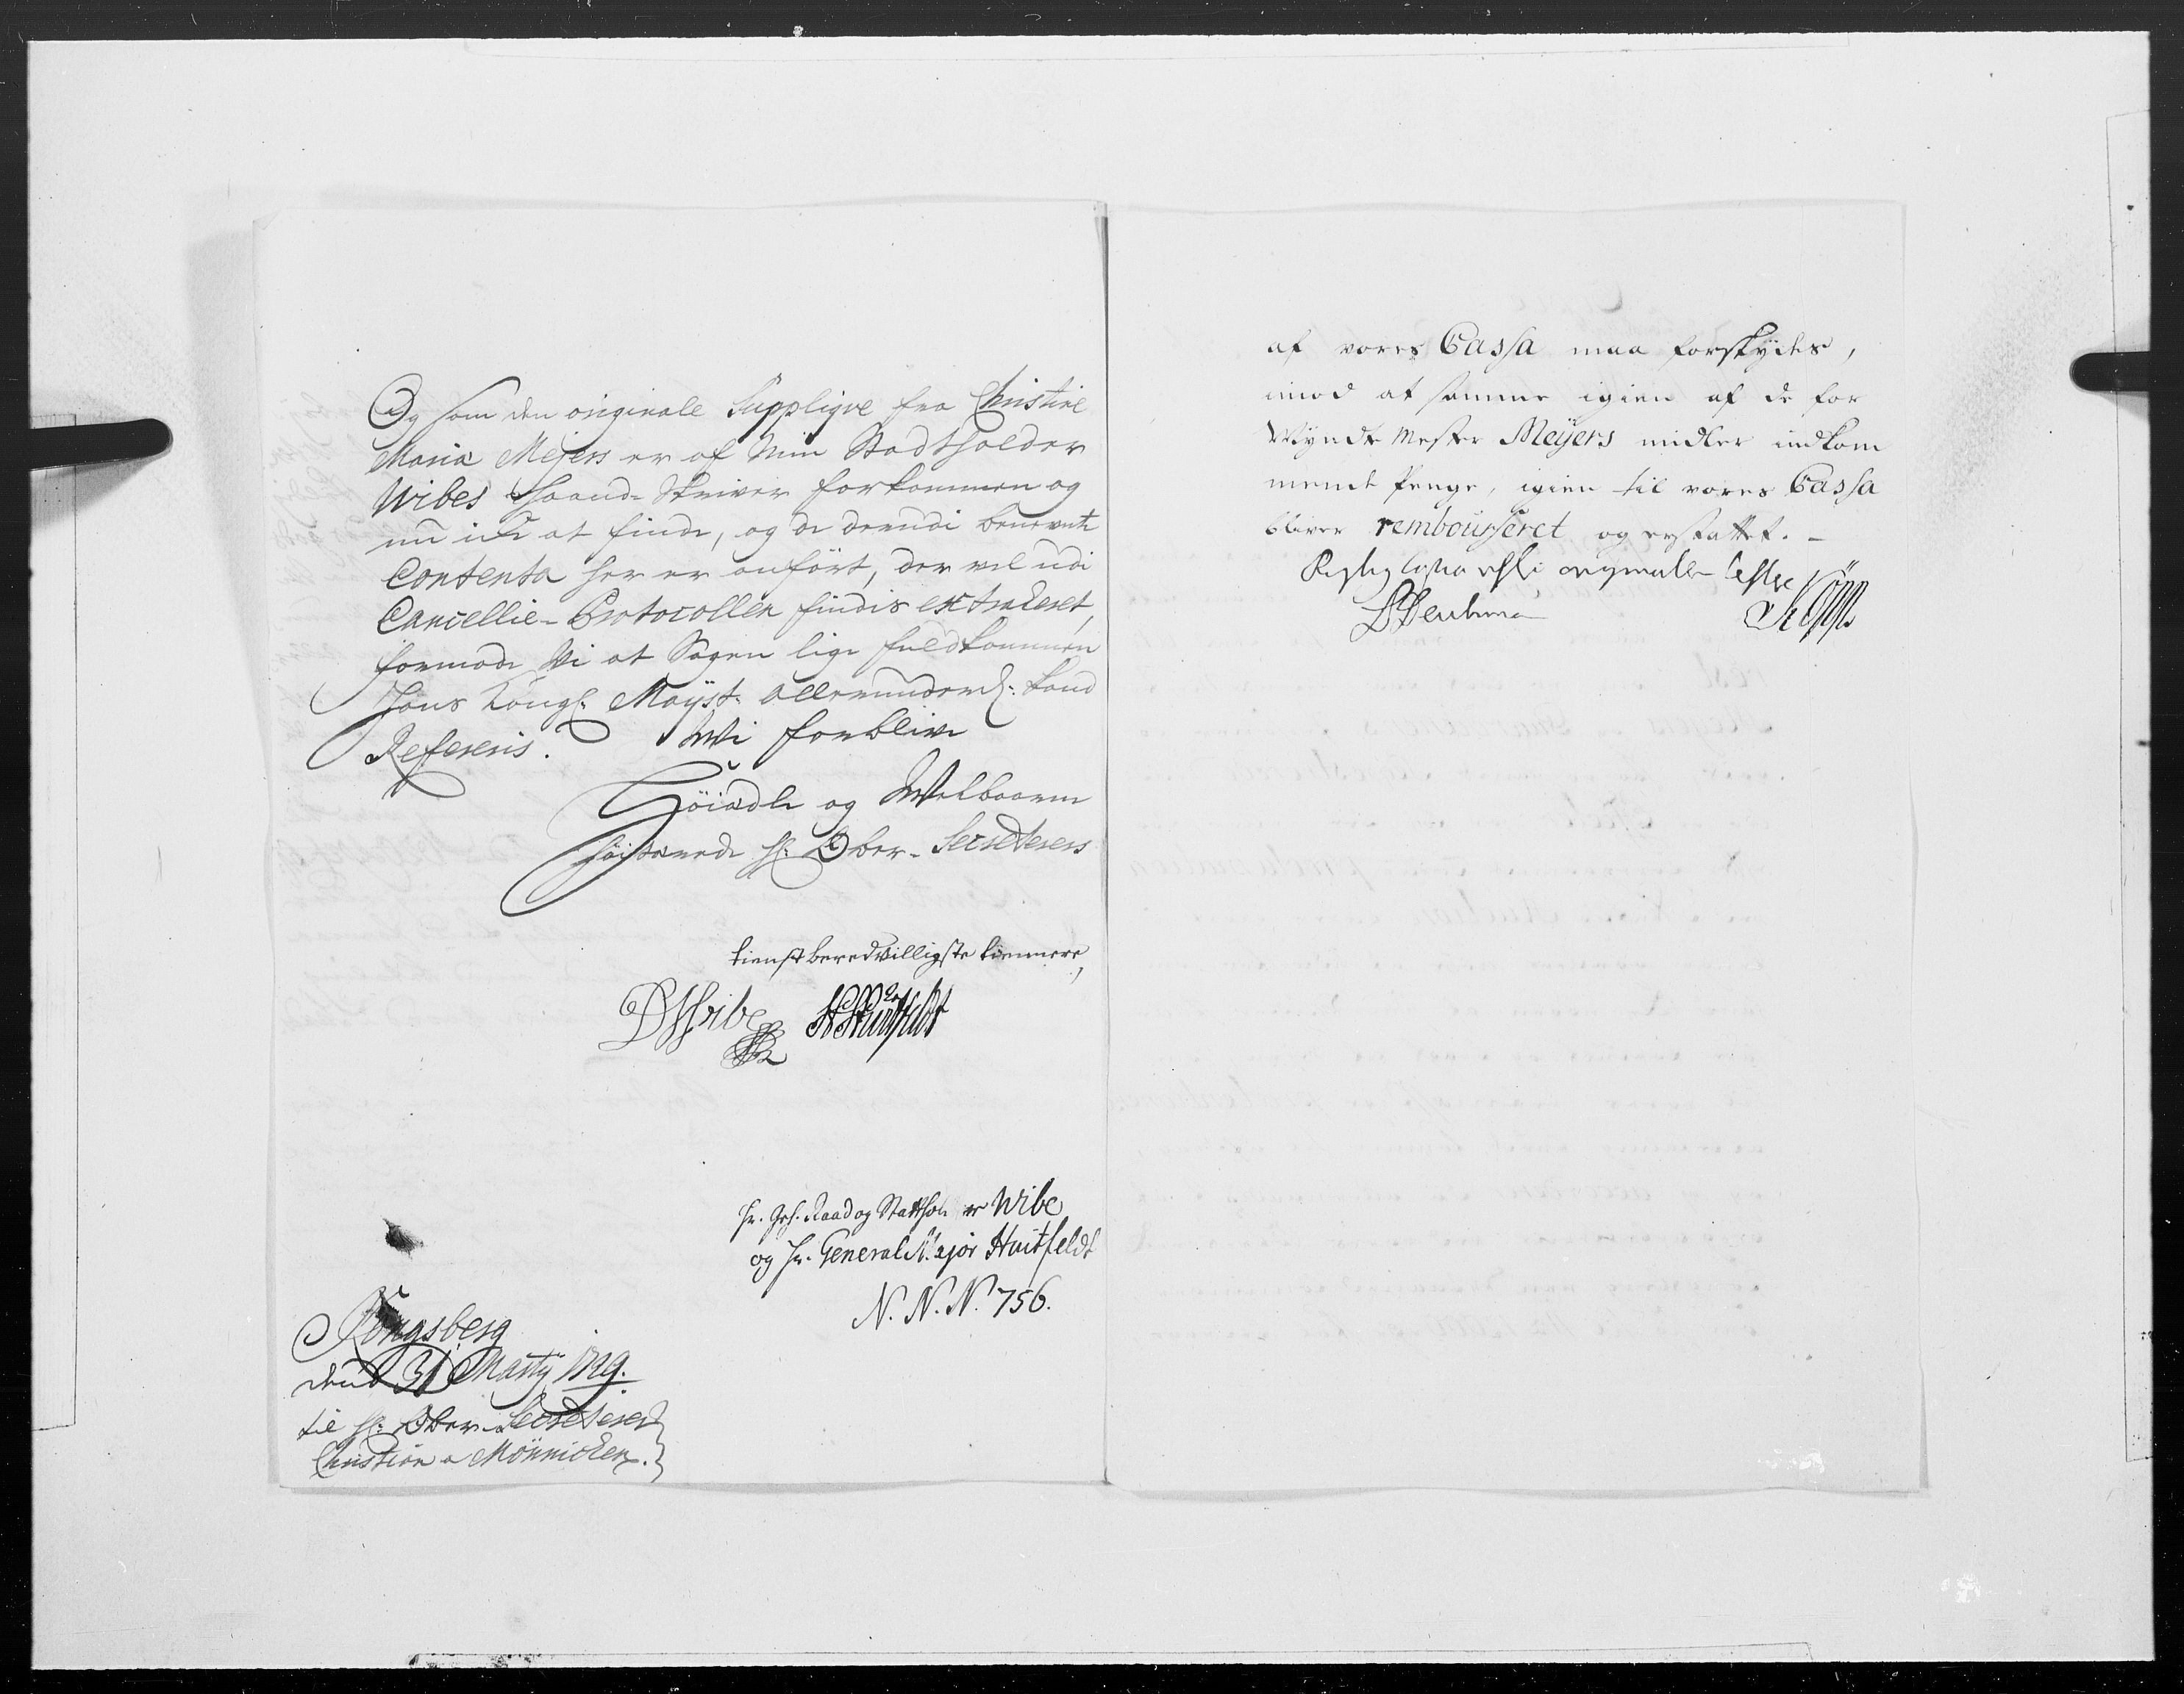 Og som den originale Suppliqve fra Christine
Maria Mejers er af Min Stadtholder
Wibes Haand-Skriver forkommen og
nu icke at finde, og de derudi benevnte
Contenta her er anført, der vel udi
Cancellie-Protocollen findis extraheret,
formode Vi at Sagen lige fuldkommen
Hans Kongl: Mayst: allerunderd: kand
Refereris. Wi forblive
Höiædle og Welbaarne
Hr: Ober-Secreterers
tienstberedvilligste tienere,
DWibe HHuitfeldt
Hr. Geh. Raad og Statholder Wibe
og Hr. General Major Huitfeldt
N. N. N. 756.
Kongsberg
dend 31 Martij 1729.
til Hr: Ober-Secreterer
Christian Mönnichen.
af vores Cassa maa forskydes,
imod at samme igien af de for
Mynte Mester Meÿers midler indkom
mende Penge, igien til vores Cassa
bliver rembourseret og erstattet.
originalen